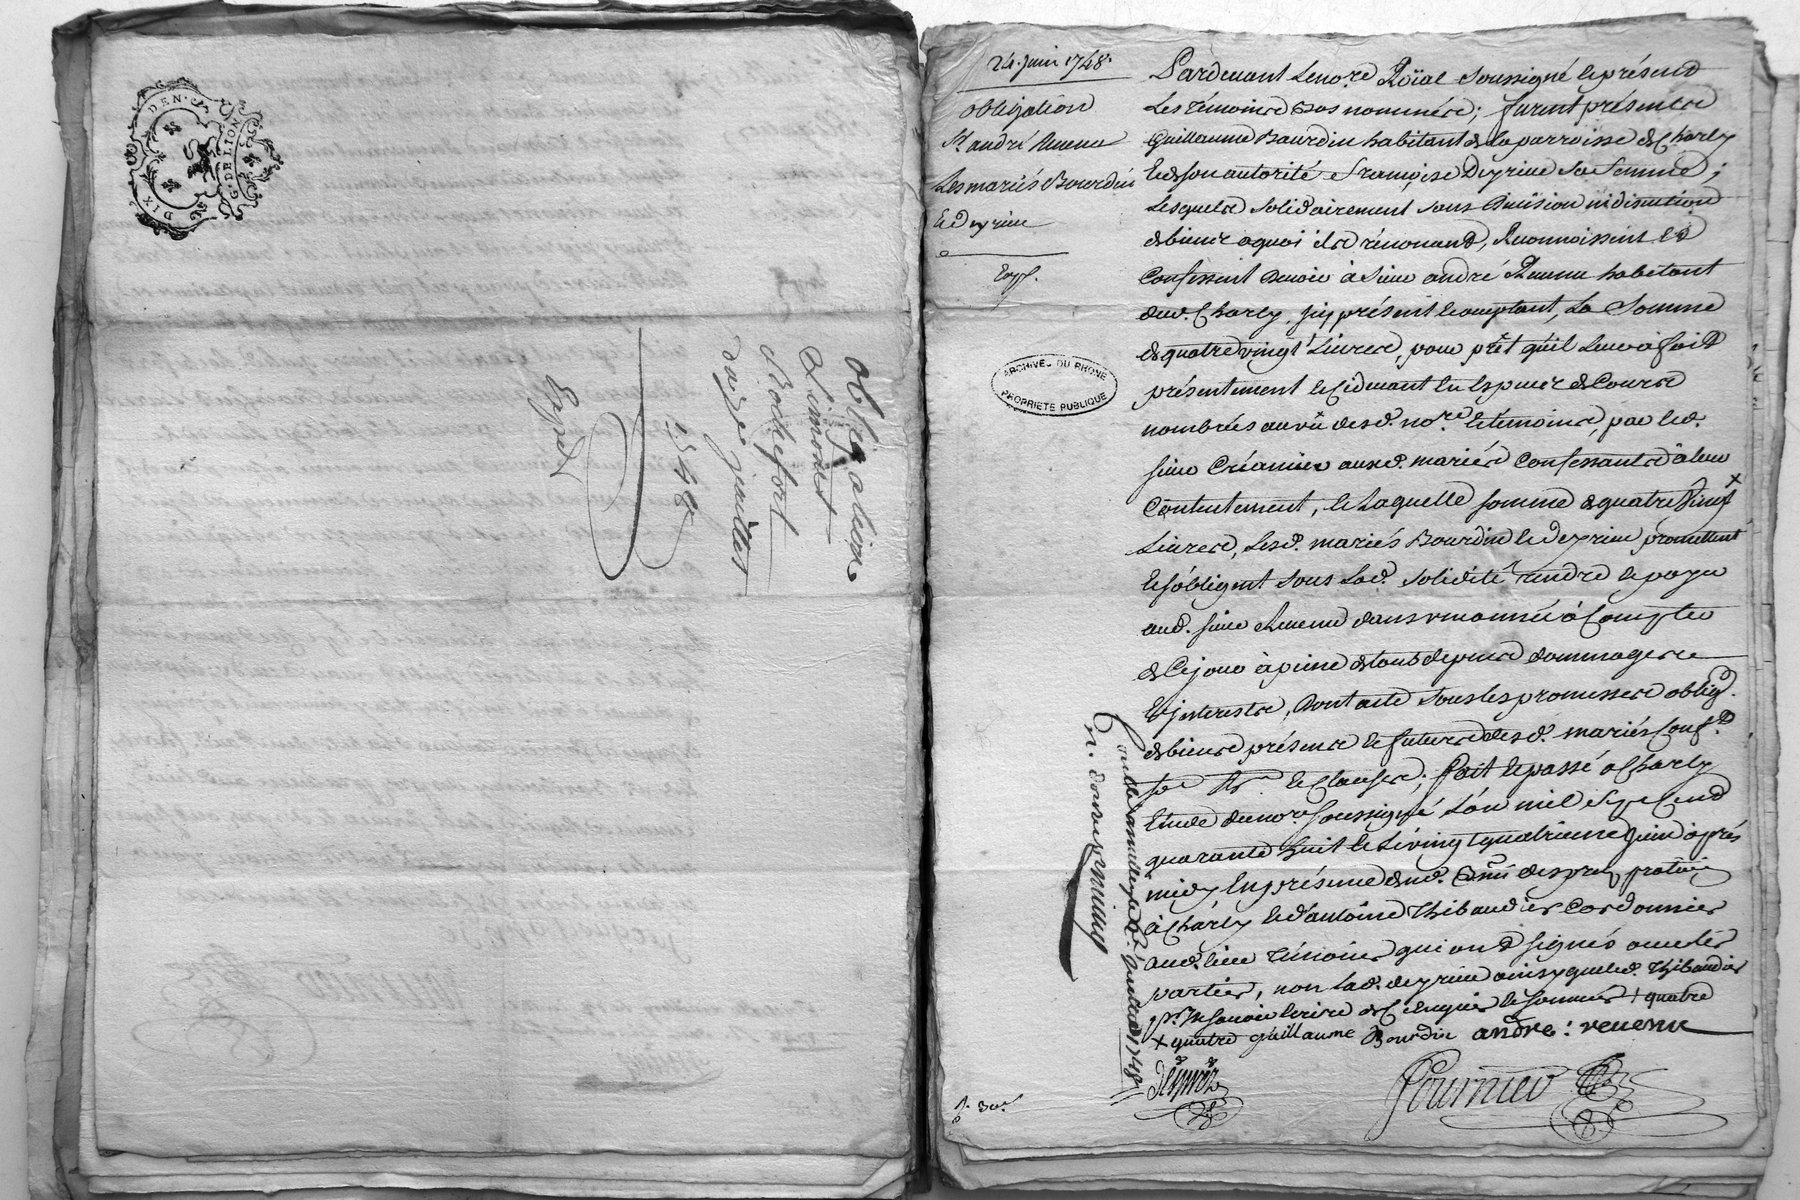 DIX DEN.
G. DE LION
obligation
Limonet
Rochefort
du 29 juillet
1748
Expéd
24. juin 1748.
obligation
Sr. andré Revenu
Les mariés Bourdin
et Deyrieu
Exp.
ARCHIVES DU RHONE
PROPRIETE PUBLIQUE
Pardevant le nore. Roïal soussigné et présens
les témoins bas nommés; furent présents
Guillaume Bourdin habitant de la parroisse de Charly
et de son autorité françoise Deyrieu sa femme;
lesquels solidairement sans division ni discution
de biens a quoi ils rénoncent, Reconnoissent et
Confessent devoir à sieur andré Revenu habitant
dud. Charly, icy présent et acceptant, la somme
de quatre vingt Livres, pour prêt qu'il leur a fait
présentement et cidevant en espèces de Cours
nombrées au vû desd. nore. et témoins, par led.
sieur Créancier auxd. mariés Confessants à leur
Contentement, et laquelle somme de quatre vingt
Livres, lesd. mariés Bourdin et Deyrieu promettent
et s'obligent sous lad. solidité rendre et payer
aud. sieur Revenu dans une année à Compter
de Ce jour à peine de tous dépens dommages
et interests, dont acte sous les promesses oblig.
de biens présents et futurs desd. mariés
et Clauses; fait et passé a Charly
Etude du nore. soussigné L'an mil sept Cend
quarante huit et Le vingt quatrieme Juin après
midy En présence de praticien
à Charly et d'antoine Thibaudier Cordonnier
aud. lieu témoins qui ont signés avec les
parties, non lad. deyrieu ainsy que led. Thibaudier
pr. ne savoir écrire de Ce enquis et sommés + quatre
+ quatre guillaume Bourdin andre: revenu
Fournier
Controllé a le 1748